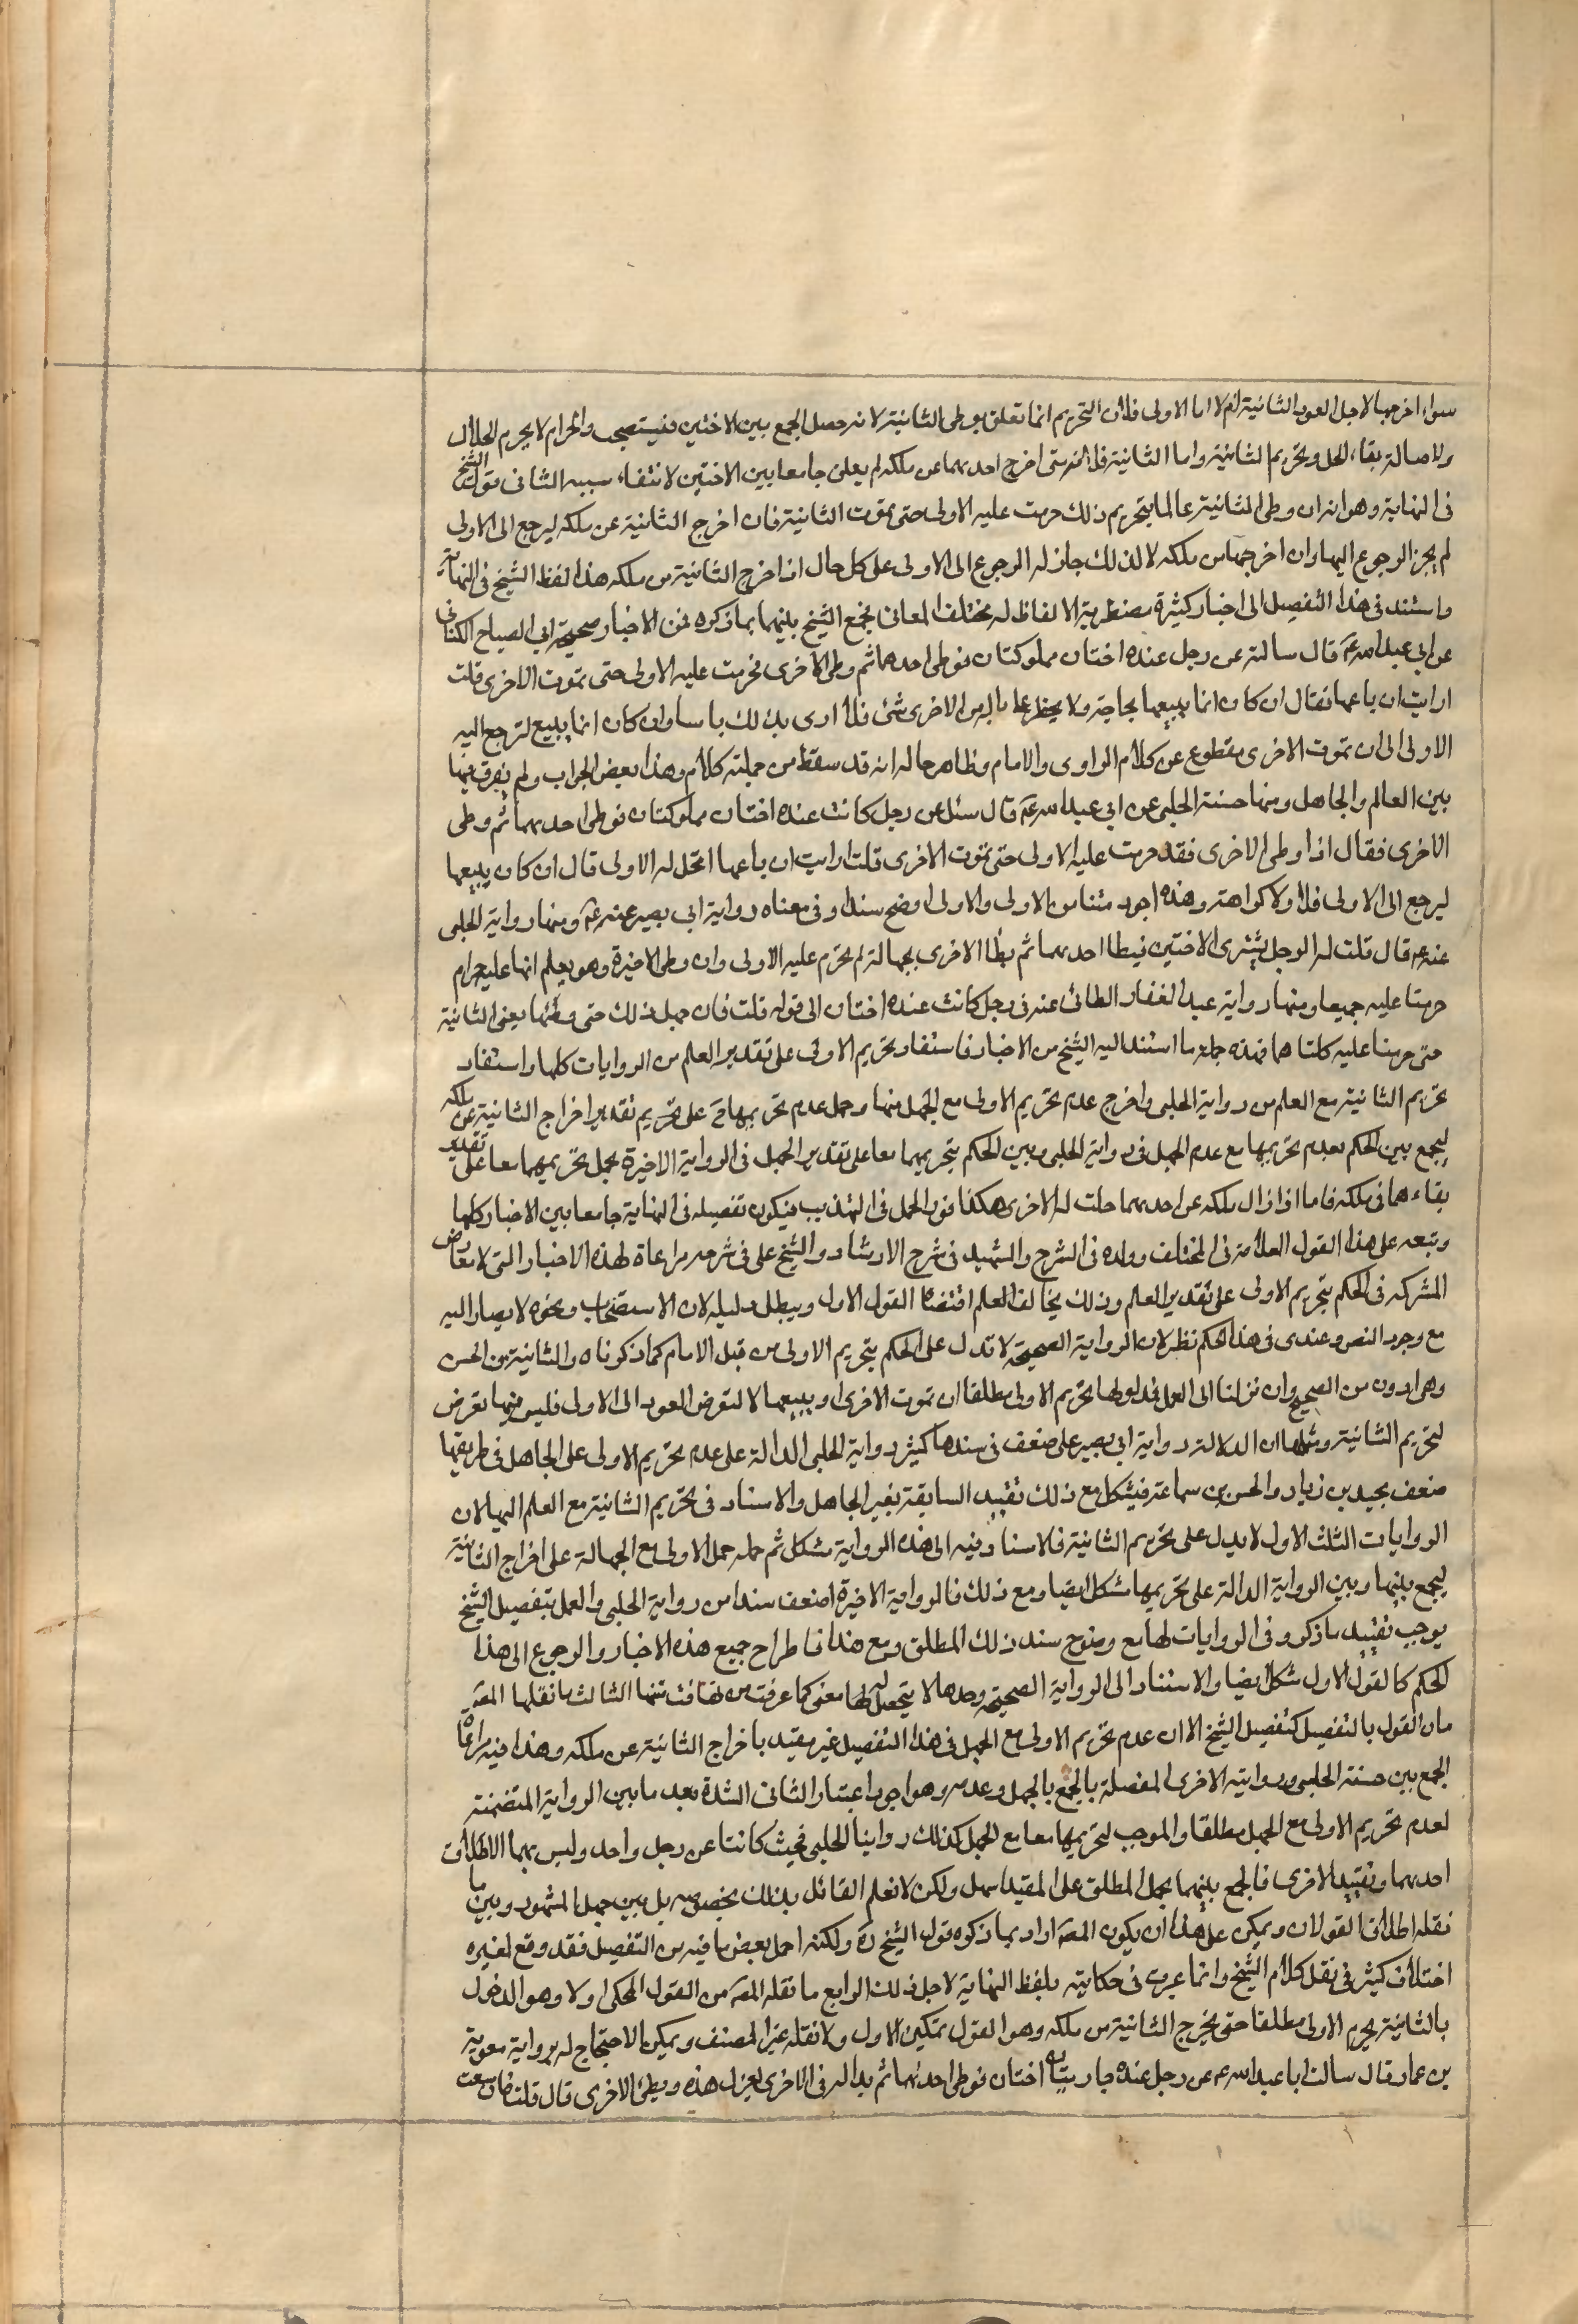 سواء اخرجها لاجل العود الثانية ام لا اما الاولى فلان التحريم انما تعلق بوطى الثانية لانه حصل الجمع بين الاختين فيستصحب والحرام لا يحرم الحلال
ولاصالة بقاء الحل وتحريم الثانية واما الثانية فلانه متى اخرج احدهما عن ملكه لم يعلى جامعا بين الاختين لانتفاء سببه الثانى قول الشيخ
فى النهاية وهو انه ان وطى الثانية عالما بتحريم ذلك حرمت عليه الاولى حتى تموت الثانية فان اخرج الثانية عن ملكه ليرجع الى الاولى
لم يجز الرجوع اليها وان اخرجها من ملكه لا لذلك جاز له الرجوع الى الاولى على كل حال اذا اخرج الثانية من ملكه هذا لفظ الشيخ فى النهاية
واستند فى هذا التفصيل الى اخبار كثيرة مضطربة الالفاظ له مختلف المعانى فجمع الشيخ بينهما بما ذكره فمن الاخبار صحيحة ابى الصباح الكنانى
عن ابى عبد الله عم قال سالته عن رجل عنده اختان مملوكتان فوطى احدهما ثم وطى الاخرى فحرمت عليه الاولى حتى تموت الاخرى قلت
ارايت ان باعها فقال ان كان انما يبيعها لحاجة ولا يخطر على باله من الاخرى شئ فلا ارى بذلك باسا وان كان انما يبيع لترجع اليه
الاولى الى ان تموت الاخرى مقطوع عن كلام الراوى والامام وظاهر حاله انه قد سقط من جملته كلام وهذا بعض الجواب ولم يفرق فيها
بين العالم والجاهل ومنها حسنة الحلبى عن ابى عبد الله عم قال سئل عن رجل كانت عنده اختان مملوكتان فوطى احدهما ثم وطى
الاخرى فقال اذا وطى الاخرى فقد حرمت عليه الاولى حتى تموت الاخرى قلت ارايت ان باعها اتحل له الاولى قال ان كان يبيعها
ليرجع الى الاولى فلا ولا كراهة وهذه اجود متنا من الاولى والاولى اوضح سندا وفى معناه رواية ابى بصير عنه عم ومنها رواية الحلبى
عنه عم قال قلت له الرجل يشترى الاختين فيطا احدهما ثم يطا الاخرى بجهالة لم تحرم عليه الاولى وان وطى الاخيرة وهو يعلم انها عليه حرام
حرمتا عليه جميعا ومنها رواية عبد الغفار الطائى عنه فى رجل كانت عنده اختان الى قوله قلت فان جهل ذلك حتى وطئها يعنى الثانية
حتى حرمتا عليه كلتاهما فهذه جملة ما استند اليه الشيخ من الاخبار فاستفاد تحريم الاولى على تقدير العلم من الروايات كلها واستفاد
تحريم الثانية مع العلم من رواية الحلبى واخرج عدم تحريم الاولى مع الجهل منها وحمل عدم تحريمها ح على تحريم تقدير اخراج الثانية عن ملكه
ليجمع بين الحكم بعدم تحريمها مع عدم الجهل فى رواية الحلبى وبين الحكم بتحريمهما معا على تقدير الجهل فى الرواية الاخيرة بحمل تحريمهما معا على تقدير
بقاءهما فى ملكه فاما اذا زال ملكه عن احدهما حلت له الاخرى هكذا قول الحمل فى التهذيب فيكون تفصيله فى النهاية جامعا بين الاخبار كلها
وتبعه على هذا القول العلامة فى المختلف وولده فى الشرح والشهيد فى شرح الارشاد والشيخ على فى شرحه مراعاة لهذه الاخبار التى لا تعارض
المشركه فى الحكم بتحريم الاولى على تقدير العلم وذلك يخالف العلم اقتضاه القول الاول ويبطل دليله لان الاستصحاب ونحوه لا يصار اليه
مع وجود النص وعندى فى هذا الحكم نظر لان الرواية الصحيحة لا تدل على الحكم بتحريم الاولى من قبل الامام كما ذكرناه والثانية من الحسن
وهى ادون من الصحيح وان نزلنا الى العمل فمدلولها تحريم الاولى مطلقا ان تموت الاخرى او يبيعها لا لتعرض العود الى الاولى فليس فيها تعرض
لتحريم الثانية ومثلها ان الدلالة رواية ابى بصير على ضعف فى سندها كثير رواية الحلبى الدالة على عدم تحريم الاولى على الجاهل فى طريقها
ضعف بحميد بن زياد والحسن بن سماعة فيشكل مع ذلك تقييد السابقة بغير الجاهل والاسناد فى تحريم الثانية مع العلم اليها لان
الروايات الثلث الاول لا يدل على تحريم الثانية فلاسناد فيه الى هذه الرواية مشكل ثم حمله حمل الاولى مع الجهالة على اخراج الثانية
ليجمع بينها وبين الرواية الدالة على تحريمها مشكل ايضا ومع ذلك فالرواية الاخيرة اضعف سندا من رواية الحلبى والعمل بتفصيل الشيخ
يوجب تقييد ما ذكر وفى الروايات لها مع وضوح سند ذلك المطلق ومع هذا فاطراح جميع هذه الاخبار والرجوع الى هذا
الحكم كالقول الاول مشكل ايضا والاستناد الى الرواية الصحيحة وحدها لا يتحصل لها معنى كما عرفت من تهافت متنها الثالث ما نقلها المص
من القول بالتفصيل كتفصيل الشيخ الا ان عدم تحريم الاولى مع الجهل فى هذا التفصيل غير مقيد باخراج الثانية عن ملكه وهذا فيه مراعاة
الجمع بين حسنة الحلبى وروايته الاخرى المفصلة بالجمع بالجهل وعدمه وهو اجود اعتبار الثانى الشدة بعد ما بين الرواية المتضمنة
لعدم تحريم الاولى مع الجهل مطلقا والموجب لتحريمها معا مع الجهل كذلك روايتا الحلبى فحيث كانتا عن رجل واحد وليس بهما الا اطلاق
احدهما وتقييد الاخرى فالجمع بينهما بحمل المطلق على المقيد سهل ولكن لا نعلم القائل بذلك بخصوصه بل بين جهل المشهور وبين ما
نقله اطلاق القولان ويمكن على هذا ان يكون المص اراد بما ذكره قول الشيخ ره ولكنه اجمل بعض ما فيه من التفصيل فقد وقع لغيره
اختلاف كثير فى نقل كلام الشيخ وانما عبرت فى حكايته بلفظ النهاية لاجل ذلك الرابع ما نقله المص من القول المحكى اولا وهو الدخول
بالثانية يحرم الاولى مطلقا حتى يخرج الثانية من ملكه وهو القول تمكين الاول ولا نقله غير المصنف ويمكن الاحتجاج له برواية معوية
بن عمار قال سالت ابا عبد الله عم عن رجل عنده جاريتان اختان فوطى احدهما ثم بدا له فى الاخرى يعزل هذه ويطئ الاخرى قال قلت